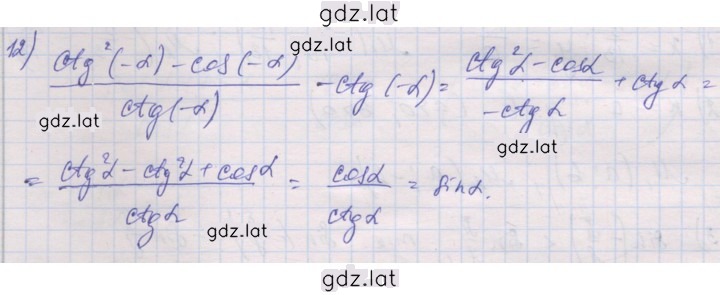 gdz.lat
12) (ctg²(-α) - cos(-α)) / ctg(-α) - ctg(-α) = (ctg²α - cosα) / -ctgα + ctgα =
gdz.lat
gdz.lat
gdz.lat
= (ctg²α - ctg²α + cosα) / ctgα = cosα / ctgα = sinα.
gdz.lat
gdz.lat